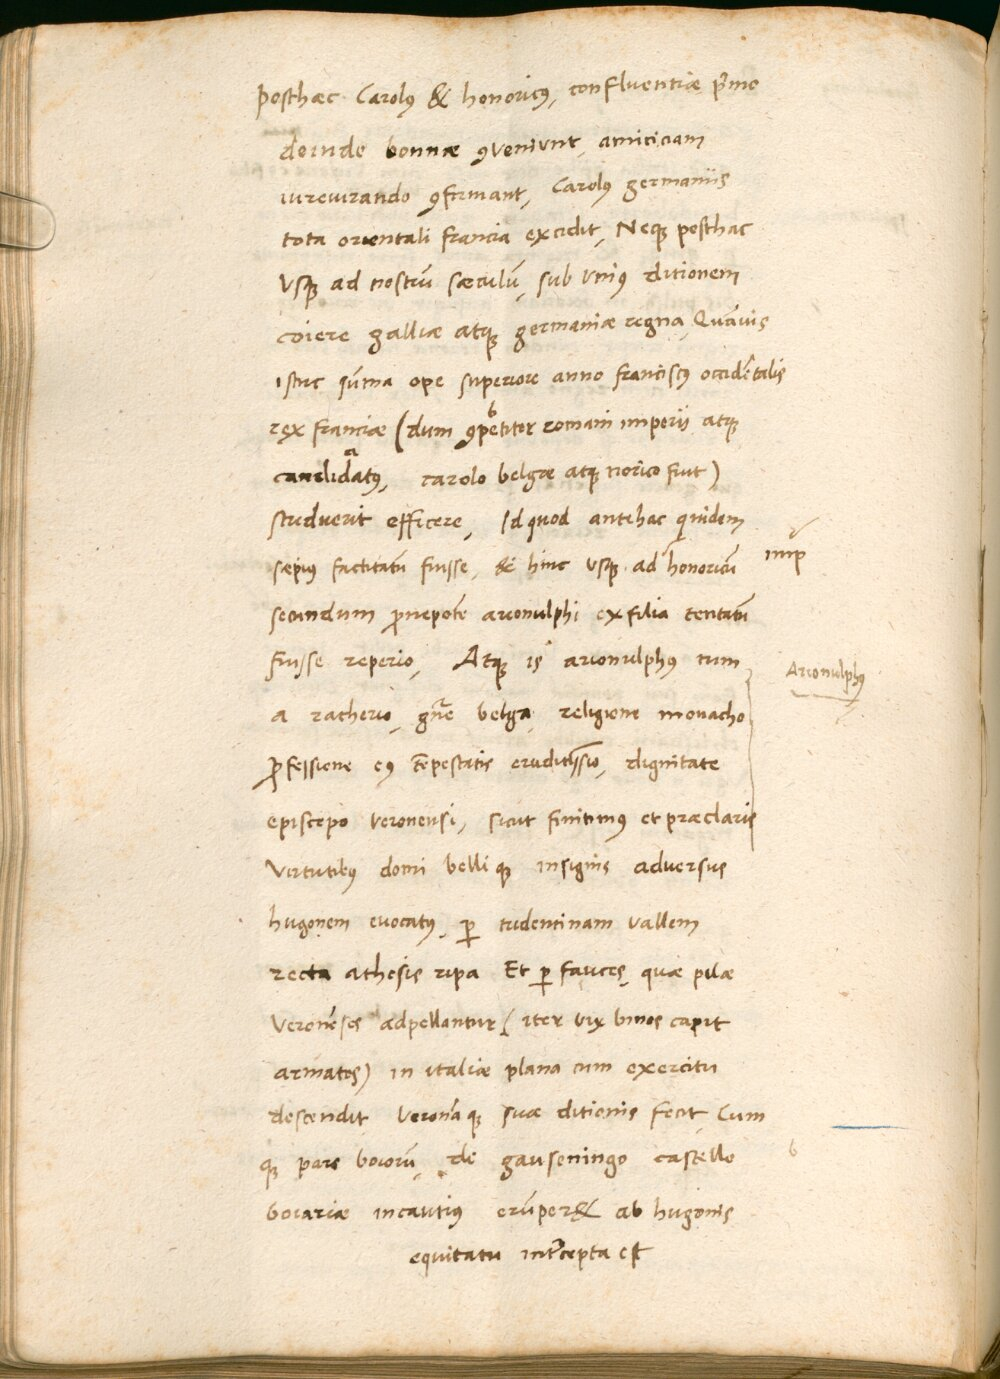 posthæc Carolꝰ & honoricꝰ, confluentiæ p̾mo
deinde bonnæ ꝯveniunt, amiciciam
iureiurando ꝯfirmant, Carolꝰ germaniis
tota orientali francia excidit, Neqꝫ posthac
vsqꝫ ad nostrū sæculū, sub vniꝰ ditionem
coiere galliæ atqꝫ germaniæ regna, Quāvis
istuc sūma ope superiore anno franciscꝰ occidētalis
rex franciæ (dum ꝯpetitor romani imperij atqꝫ
candidatꝰ, carolo belgæ atqꝫ norico fuit)
studuerit efficere, Id quod antehac quidem
sæpius factitatū fuisse, & hinc vsqꝫ ad honoricū
imp̄
secundum ꝓnepotē arionulphi ex filia tentatū
fuisse reperio, Atqꝫ is arionulphꝰ cum
Arionulphꝰ
a racherio, gn̄e belga, religione monacho
ꝓfessione eꝰ tēpestatis eruditissio, dignitate
episcopo veronensi, sicut finitimꝰ et præclaris
virtutibꝰ domi belliqꝫ insignis adversus
hugonem evocatꝰ, ꝑ tridentinam vallem
recta athesis ripa Et ꝑ fauces, quæ pilæ
veronēses adpellantur (iter vix binos capit
armatos) in italiæ plana cum exercitu
descendit veronāqꝫ suæ ditionis fecit, Cum
qꝫ pars boiorū, de gauseningo castello
b
boiariæ incautius erūper& ab hugonis
equitatu int̾cepta est